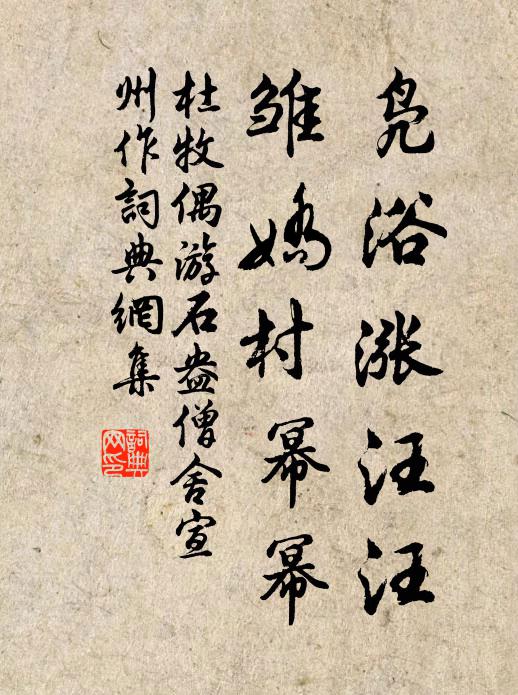 凫浴涨汪汪
雏娇村幂幂
杜牧偶游石盎僧舍宣
州作詞典網集
詞典网印